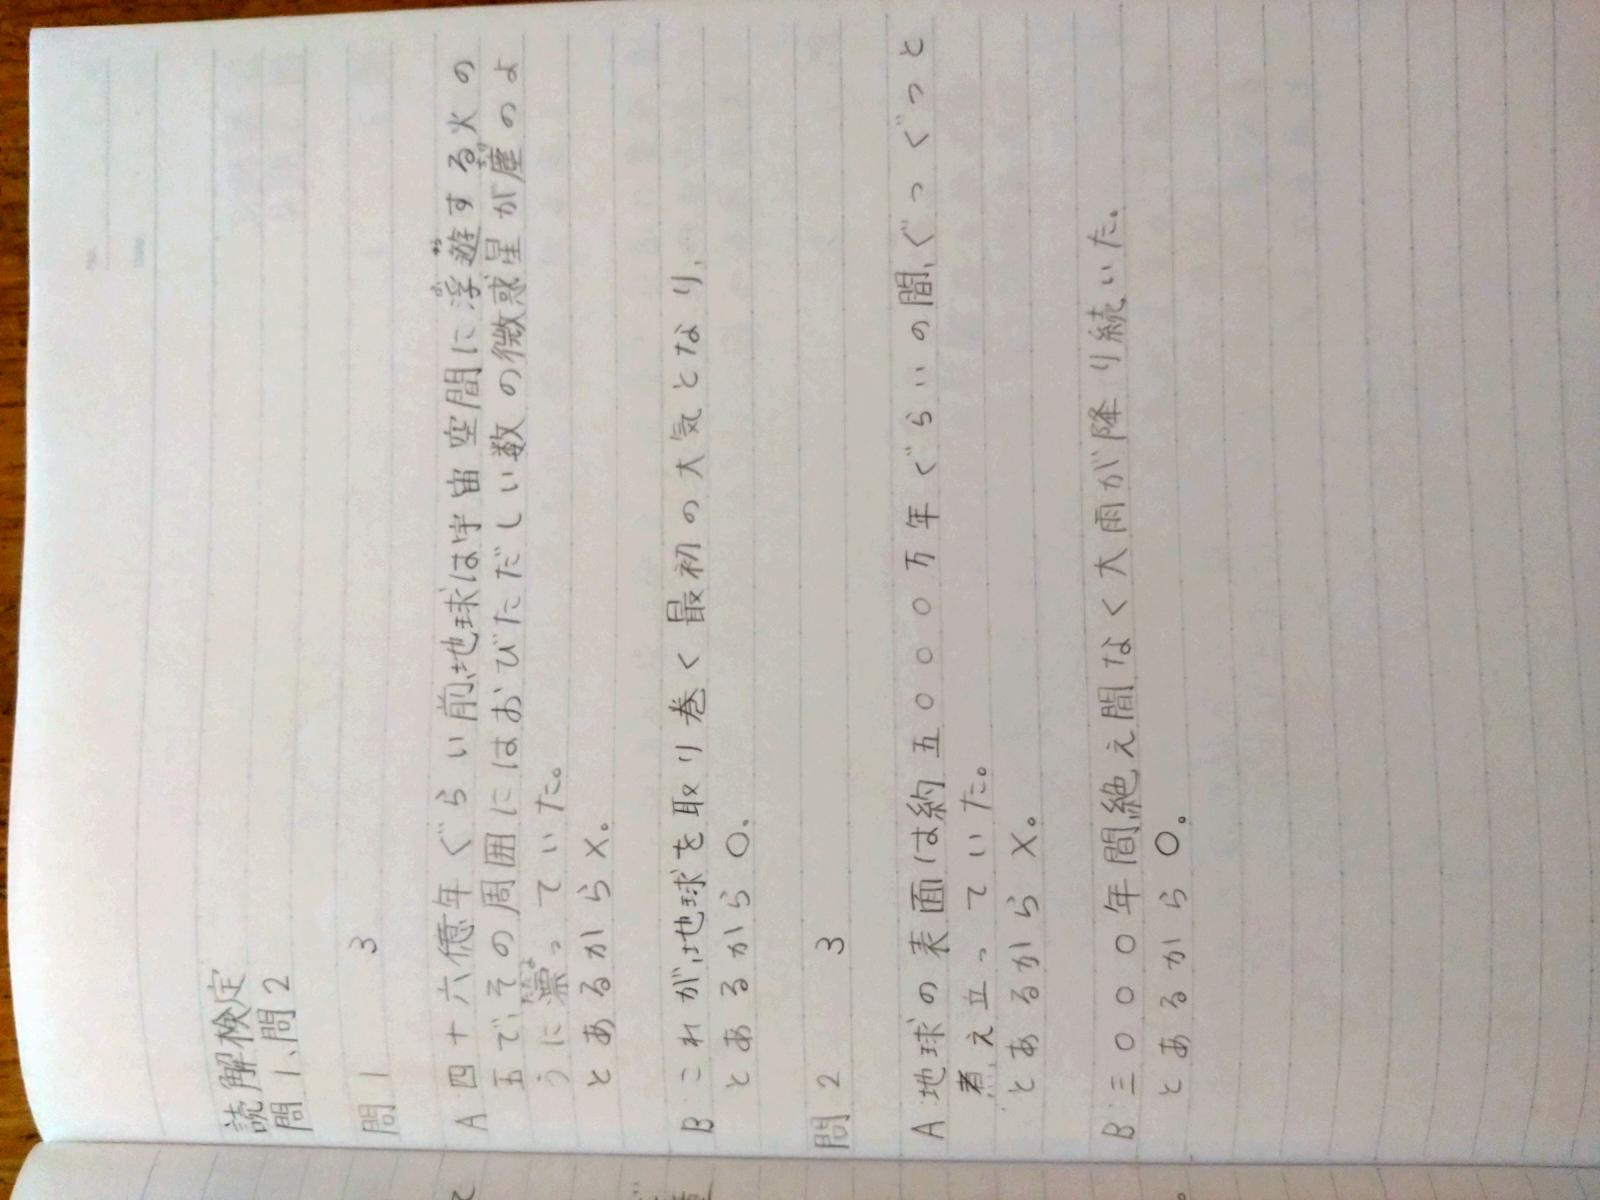 読解検定
問1、問2
問1 3
A 四十六億年ぐらい前、地球は宇宙空間に浮遊する火の
玉で、その周囲にはおびただしい数の微惑星が塵のよ
うに漂っていた。
とあるから×。
B これが、地球を取り巻く最初の大気となり、
とあるから○。
問2 3
A 地球の表面は約五〇〇〇万年ぐらいの間、ぐっぐっと
煮え立っていた。
とあるから×。
B 三〇〇〇年間絶え間なく大雨が降り続いた。
とあるから○。